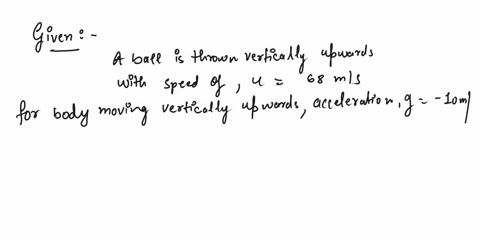 Given :-
A ball is thrown vertically upwards
with speed of, u = 68 m/s
for body moving vertically upwards, acceleration, g = -10m/